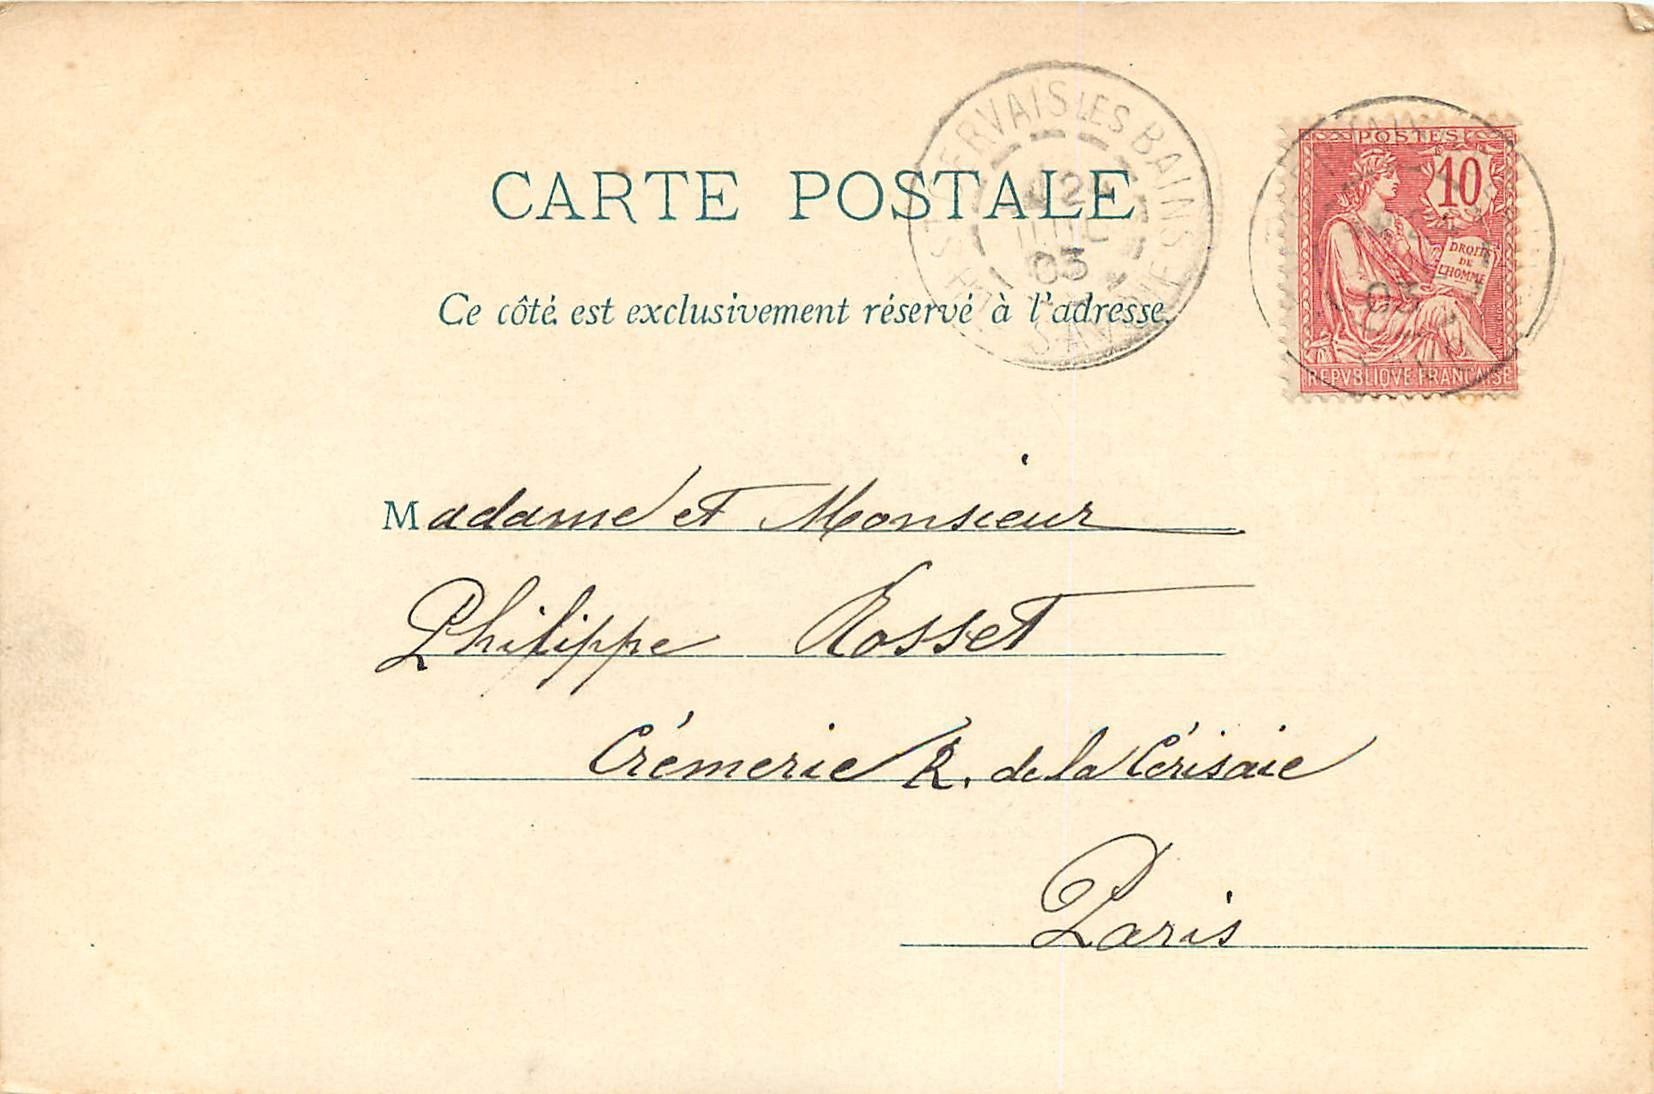 CARTE POSTALE
Ce côté est exclusivement réservé à l'adresse.
ST GERVAIS LES BAINS
03
POSTES
10
DROITS
DE
L'HOMME
REPVBLIQVE FRANCAISE
03
Madame et Monsieur
Philippe Rosset
Crémerie R. de la Cérisaie
Paris